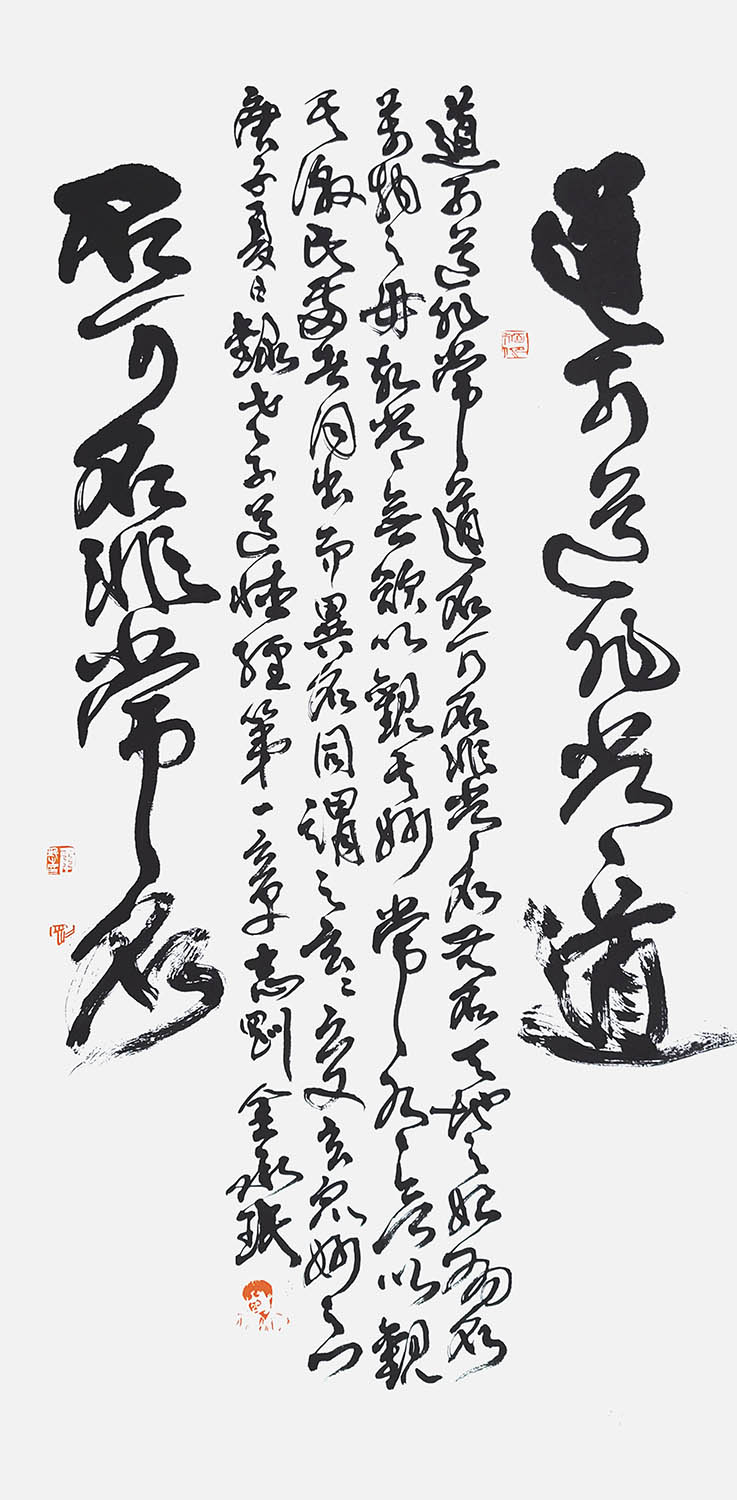 道可道非常道
道可道非常道名可名非常名无名天地之始有名
萬物之母故常無欲以觀其妙常有欲以觀
其徼此兩者同出而異名同謂之玄〻之又玄衆妙之門
庚子夏日錄老子道德經第一章志剛
名可名非常名